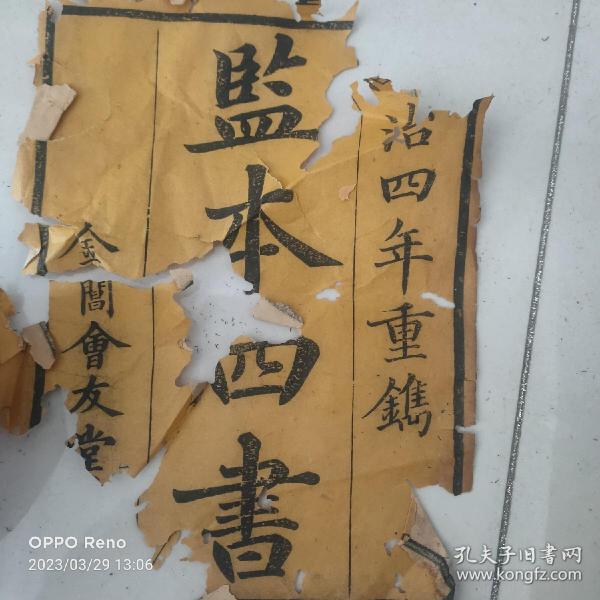 治四年重鐫
監本四書
金閶會友堂
OPPO Reno
2023/03/29 13:06
孔夫子旧书网
www.kongfz.com